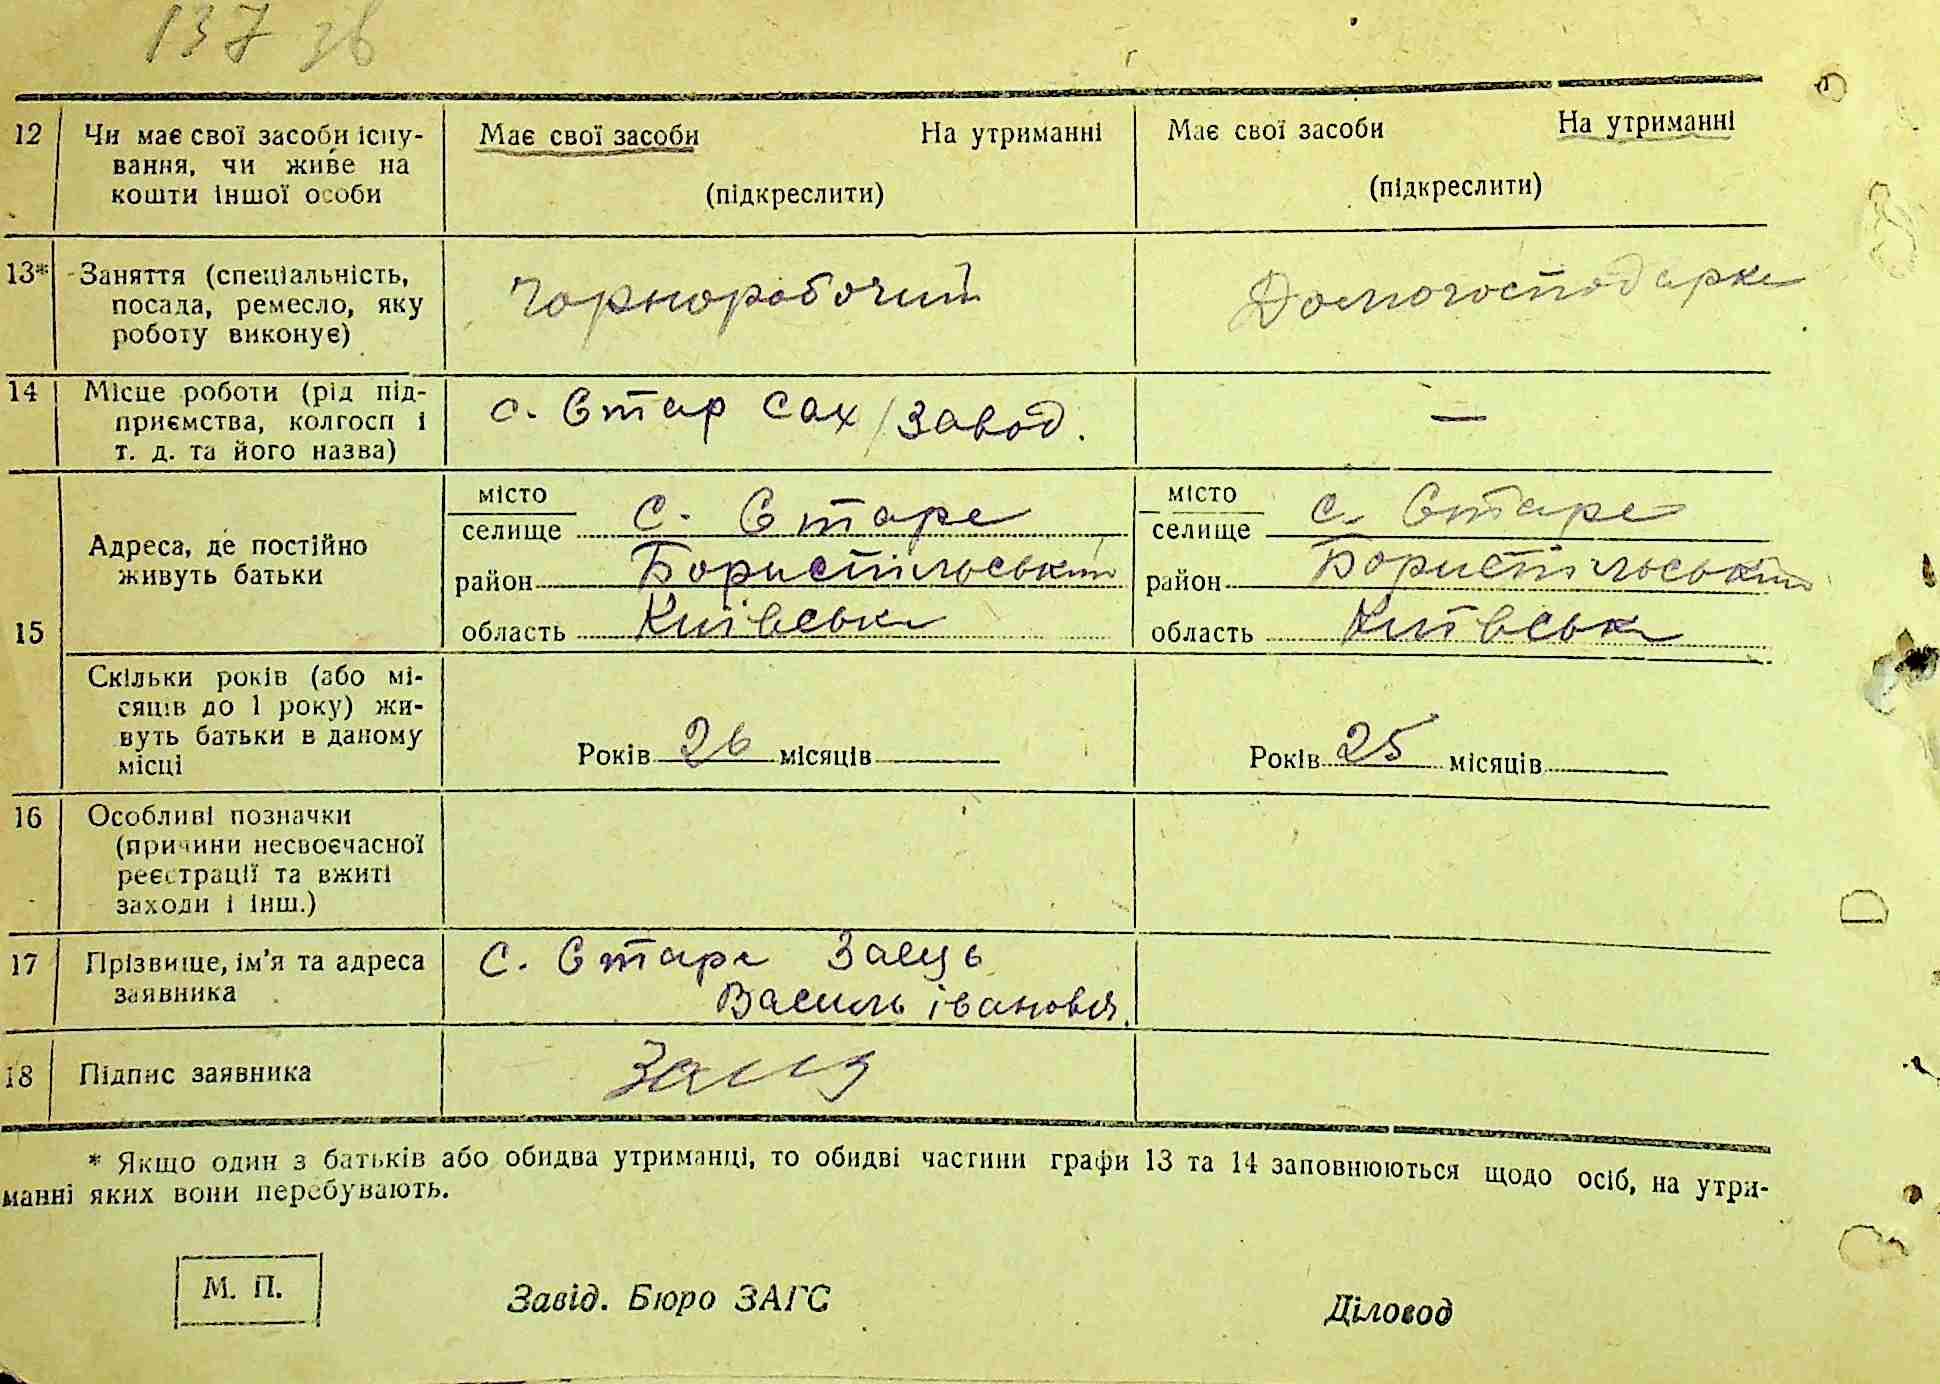 137 зв
12 Чи має свої засоби існу- Має свої засоби На утриманні Має свої засоби На утриманні
вання, чи живе на
кошти іншої особи (підкреслити) (підкреслити)
13* Заняття (спеціальність,
посада, ремесло, яку чорноробочий Домогосподарка
роботу виконує)
14 Місце роботи (рід під-
приємства, колгосп і с. Стар сах/завод. —
т. д. та його назва)
15 Адреса, де постійно
живуть батьки
місто
селище с. Старе
район Бориспільський
область Київськ
місто
селище с. Старе
район Бориспільський
область Київськ
Скільки років (або мі-
сяців до 1 року) жи-
вуть батьки в даному
місці
Років 26 місяців Років 25 місяців
16 Особливі позначки
(причини несвоєчасної
реєстрації та вжиті
заходи і інш.)
17 Прізвище, ім'я та адреса
заявника
с. Старе Заєць
Василь
18 Підпис заявника
* Якщо один з батьків або обидва утриманці, то обидві частини графи 13 та 14 заповнюються щодо осіб, на утри-
манні яких вони перебувають.
М. П. Завід. Бюро ЗАГС Діловод